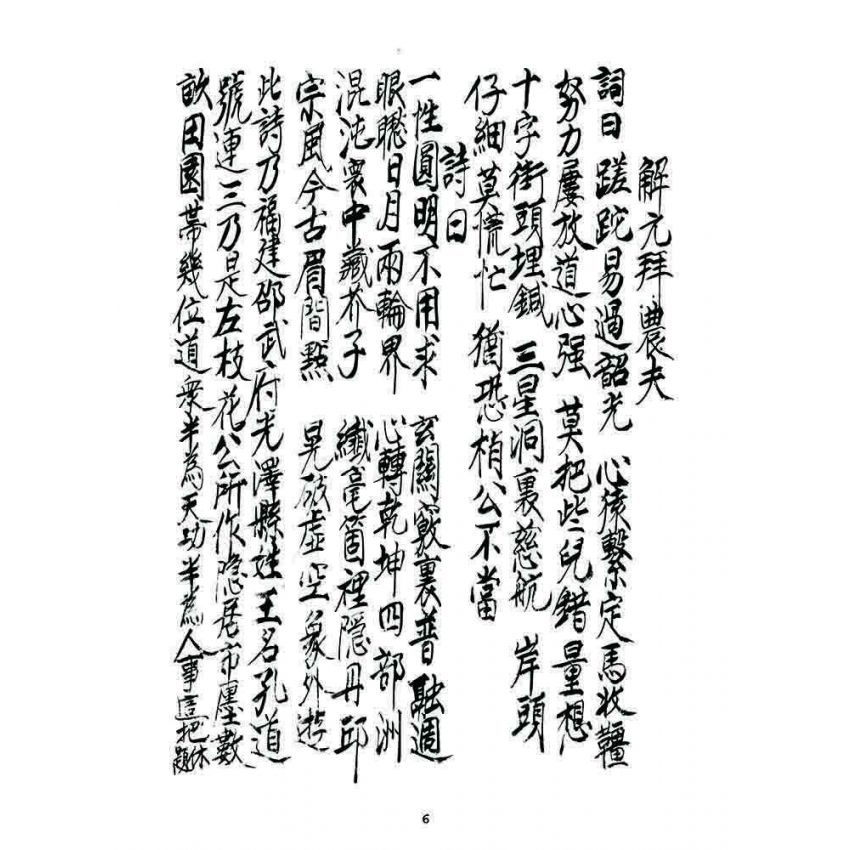 解元拜農夫
詞曰 蹉跎易過韶光 心猿繫定馬收韁
努力屢放道心强 莫把些兒錯量想
十字街頭埋鍼 三星洞裏慈航 岸頭
仔細莫慌忙 猶恐梢公不當
詩曰
一性圓明不用求 玄關竅裏普融週
眼眺日月兩輪界 心轉乾坤四部洲
混沌裏中藏芥子 纖毫箇裡隱丹邱
宗風今古眉間點 晃破虛空象外遊
此詩乃福建邵武府光澤縣姓王名孔道
號連三乃是左枝花公所作隐居市廛數
畝田園帶幾位道衆半為天功半為人事這把休題
6